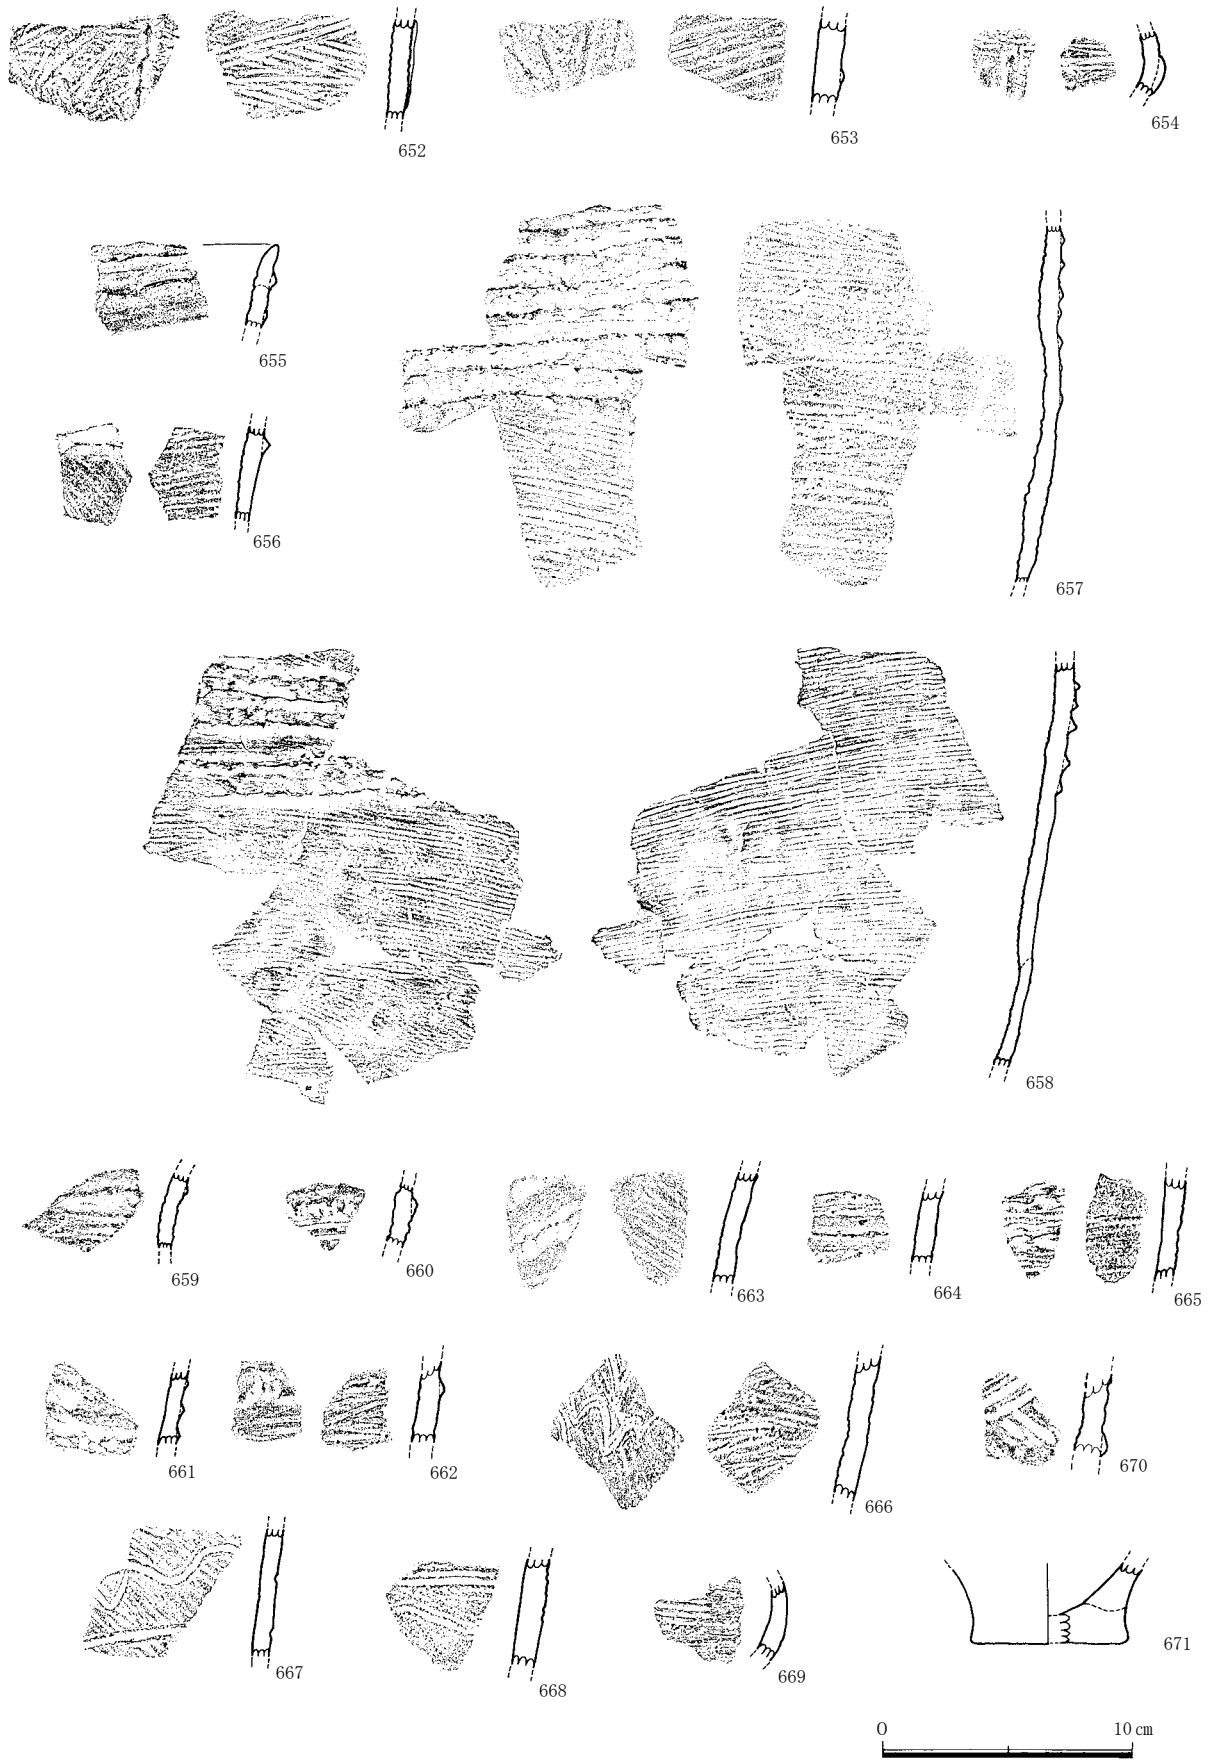 652
653
654
655
656
657
658
659
660
663
664
665
661
662
666
670
667
668
669
671
0 10cm